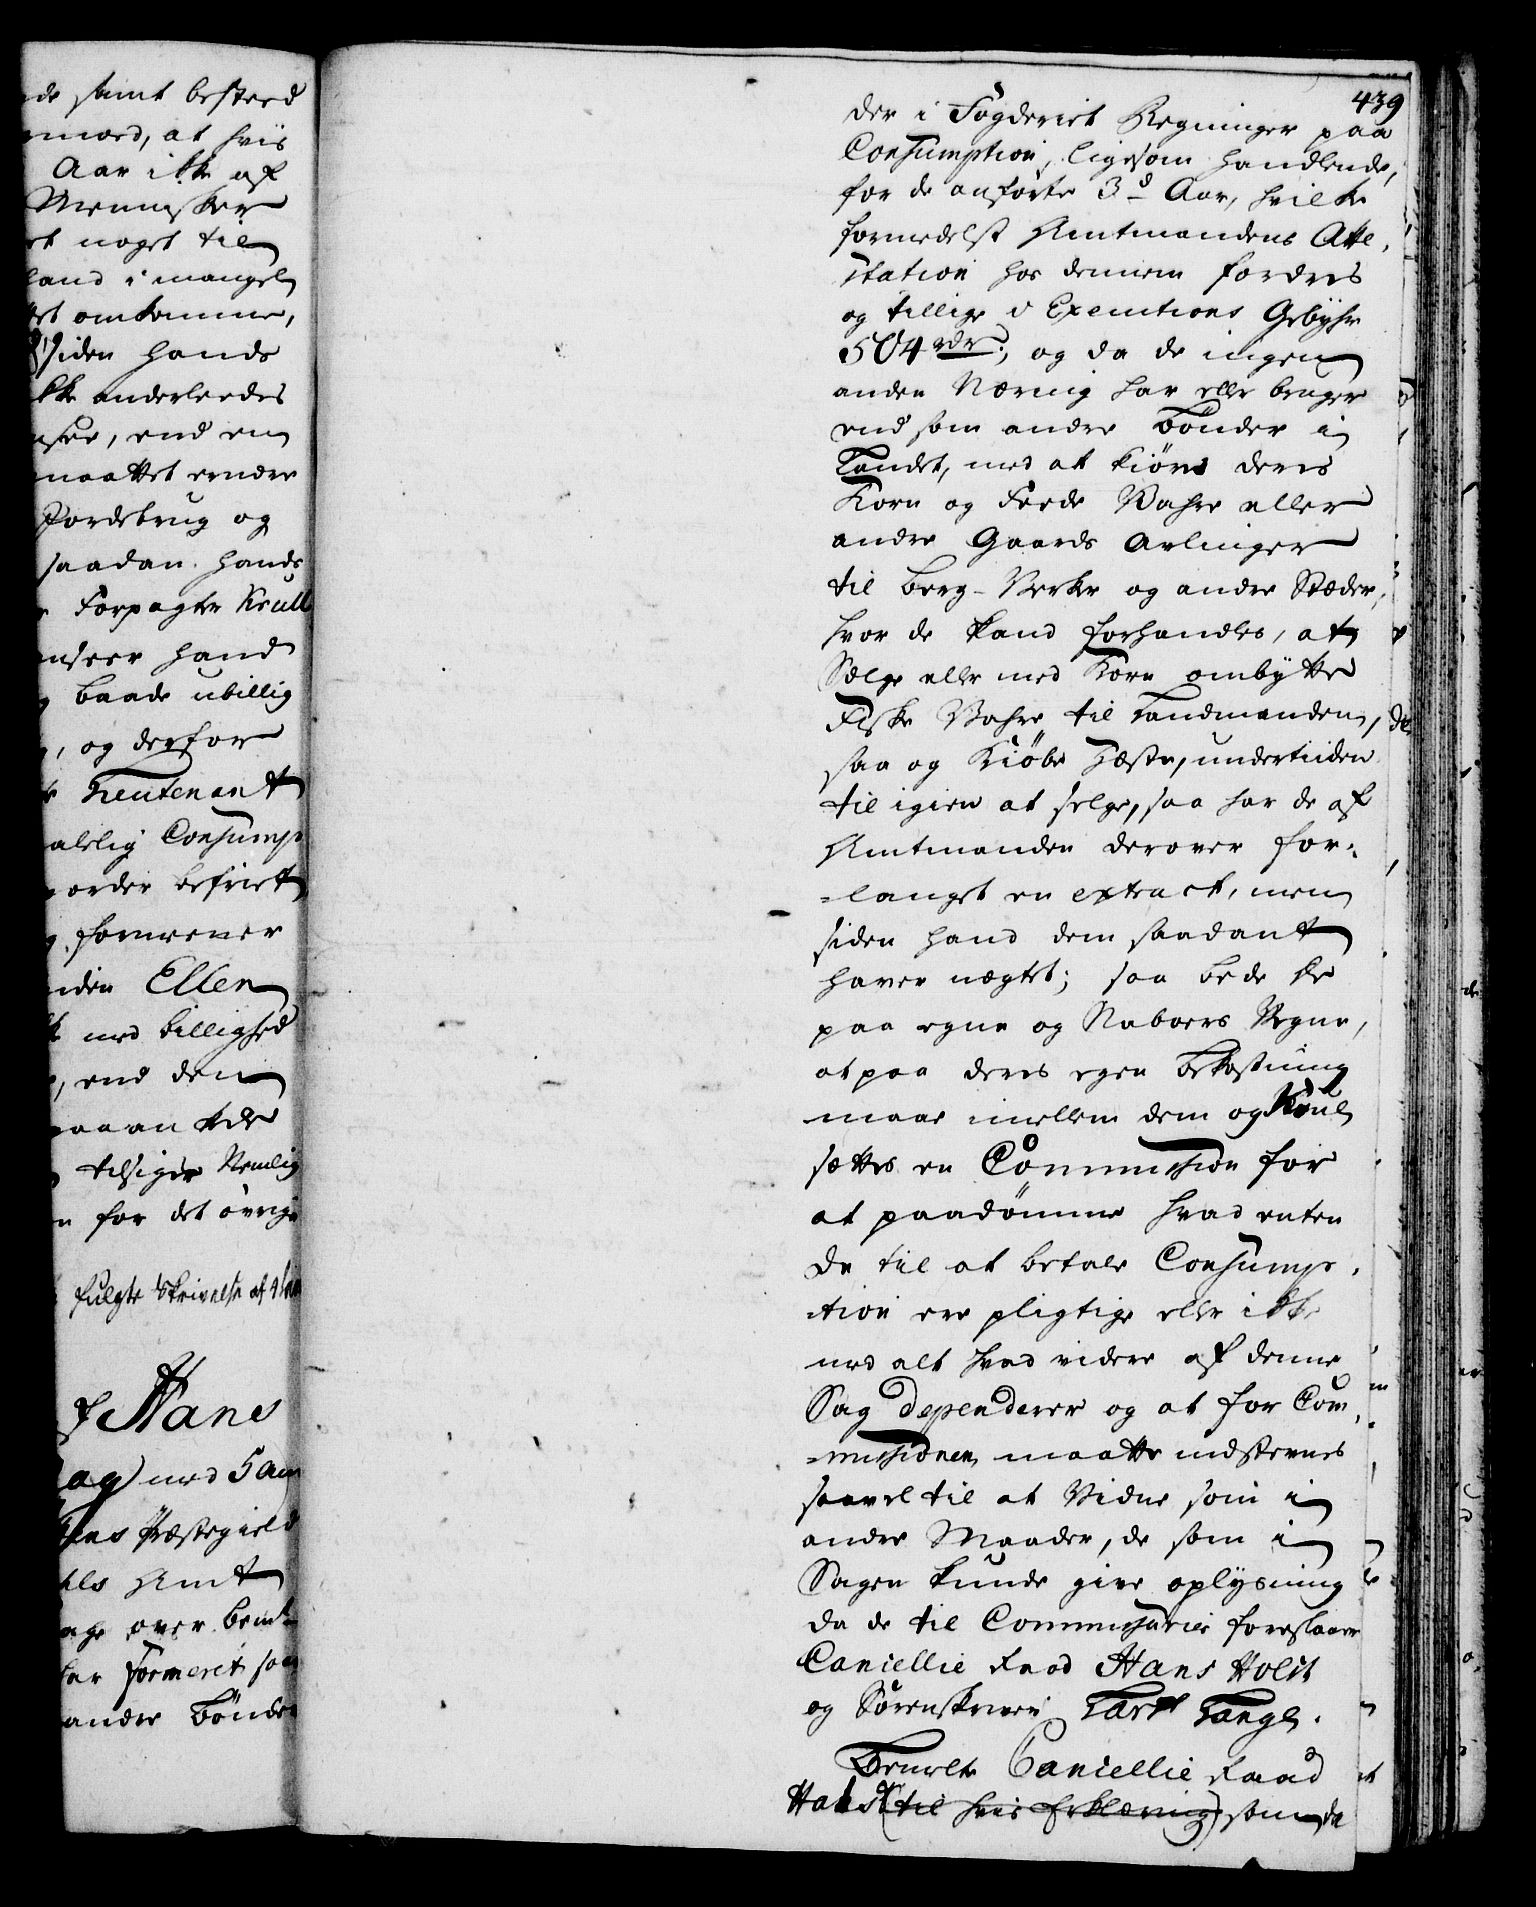 de samt besterd
med, at hvis
Aar ikke af
Mennisker
et noget til
land i mangel
tet omkomme,
siden hands
ikke anderleedes
end en
maattet endre
Jordebrug og
saadan hands
Forpagter Krull
anseer hand
baade ubillig
, og derfor
Lieutenant
alelig Consump
order befriet
formeener
iden Ellen
med billighed
, end den
paaankede
tilsiger Nemlig
for det övrige
fulgte Skrivelse af
Hans
ag) med 5 an
Præstegield
als Amt
age over bemte
har formeret saa
andre bönder
439
der i Fogderiet Regninger paa
Consumption, ligesom handlende,
for de anförte 3de Aar, hvilke
formedelst Amtmandens Atte,
station hos dennem fordres
og tillige i Executions Gebyhr
504 rdr:, og da de ingen
anden Næring har eller bruger
end som andre bönder i
Landet, med at kiöre deres
Korn og Feede Vahre eller
andre Gaards Avlinger
til Berg-Verker og andre Stæder,
hvor de kand forhandles, at
Sælge eller med Korn ombytte
Fiske Vahre til Landmanden,
saa og Kiöbe Heste, undertiiden
til igien at selge, saa har de af
Amtmanden derover for-
=langet en extract, men
siden hand dem saadant
haver nægtet; saa bede de
paa egne og Naboers Vegne,
at paa deres egen bekostning
maae imellem dem og Krull
sættes en Commission for
at paadömme hvad enten
de til at betale Consump,
=tion ere pligtige eller ikke
med alt hvad videre af denne
Sag dependerer og at for Com,
=missionen maatte indstevnes
saavel til at Vidne som i
andre Maader, de som i
Sagen kunde give oplysning
da de til Commissarier foreslaaer
Cancellie Raad Hans Holst
og Sorenskriver Lars Lange.
Bemelte Cancellie Raad
Holst (til hvis Erklæring) som da